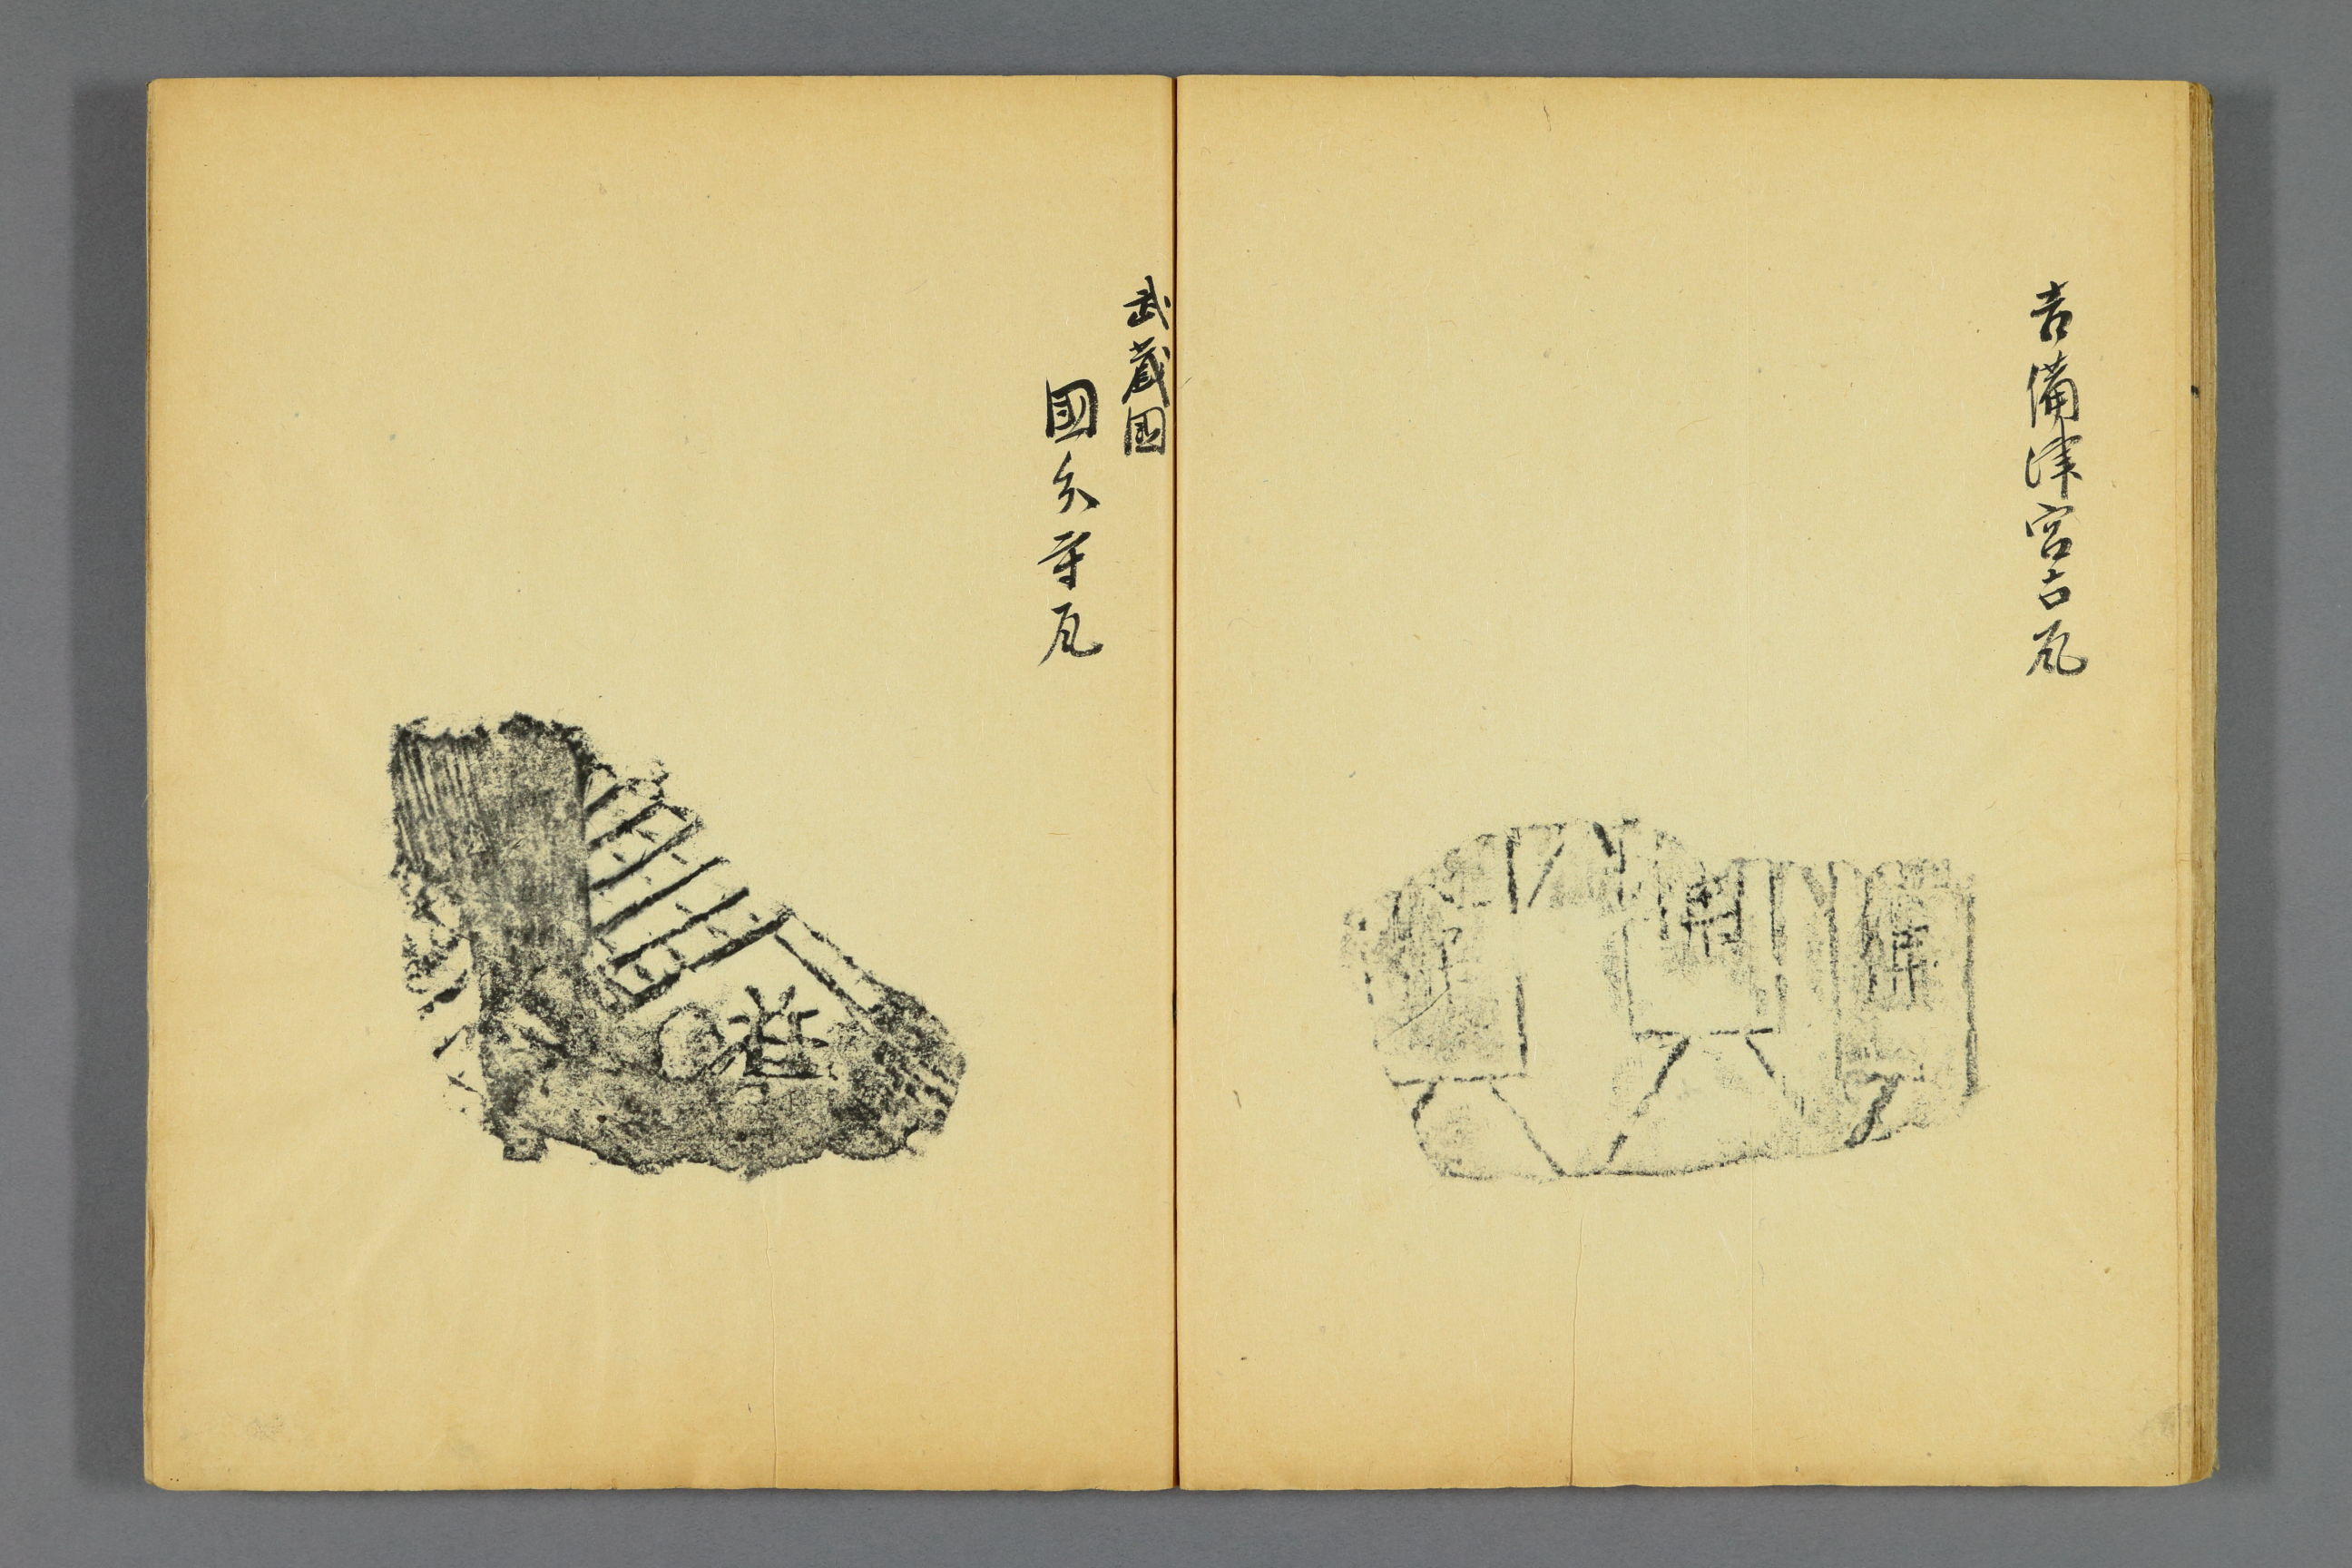 吉備津宮古瓦
武蔵國
國分寺瓦